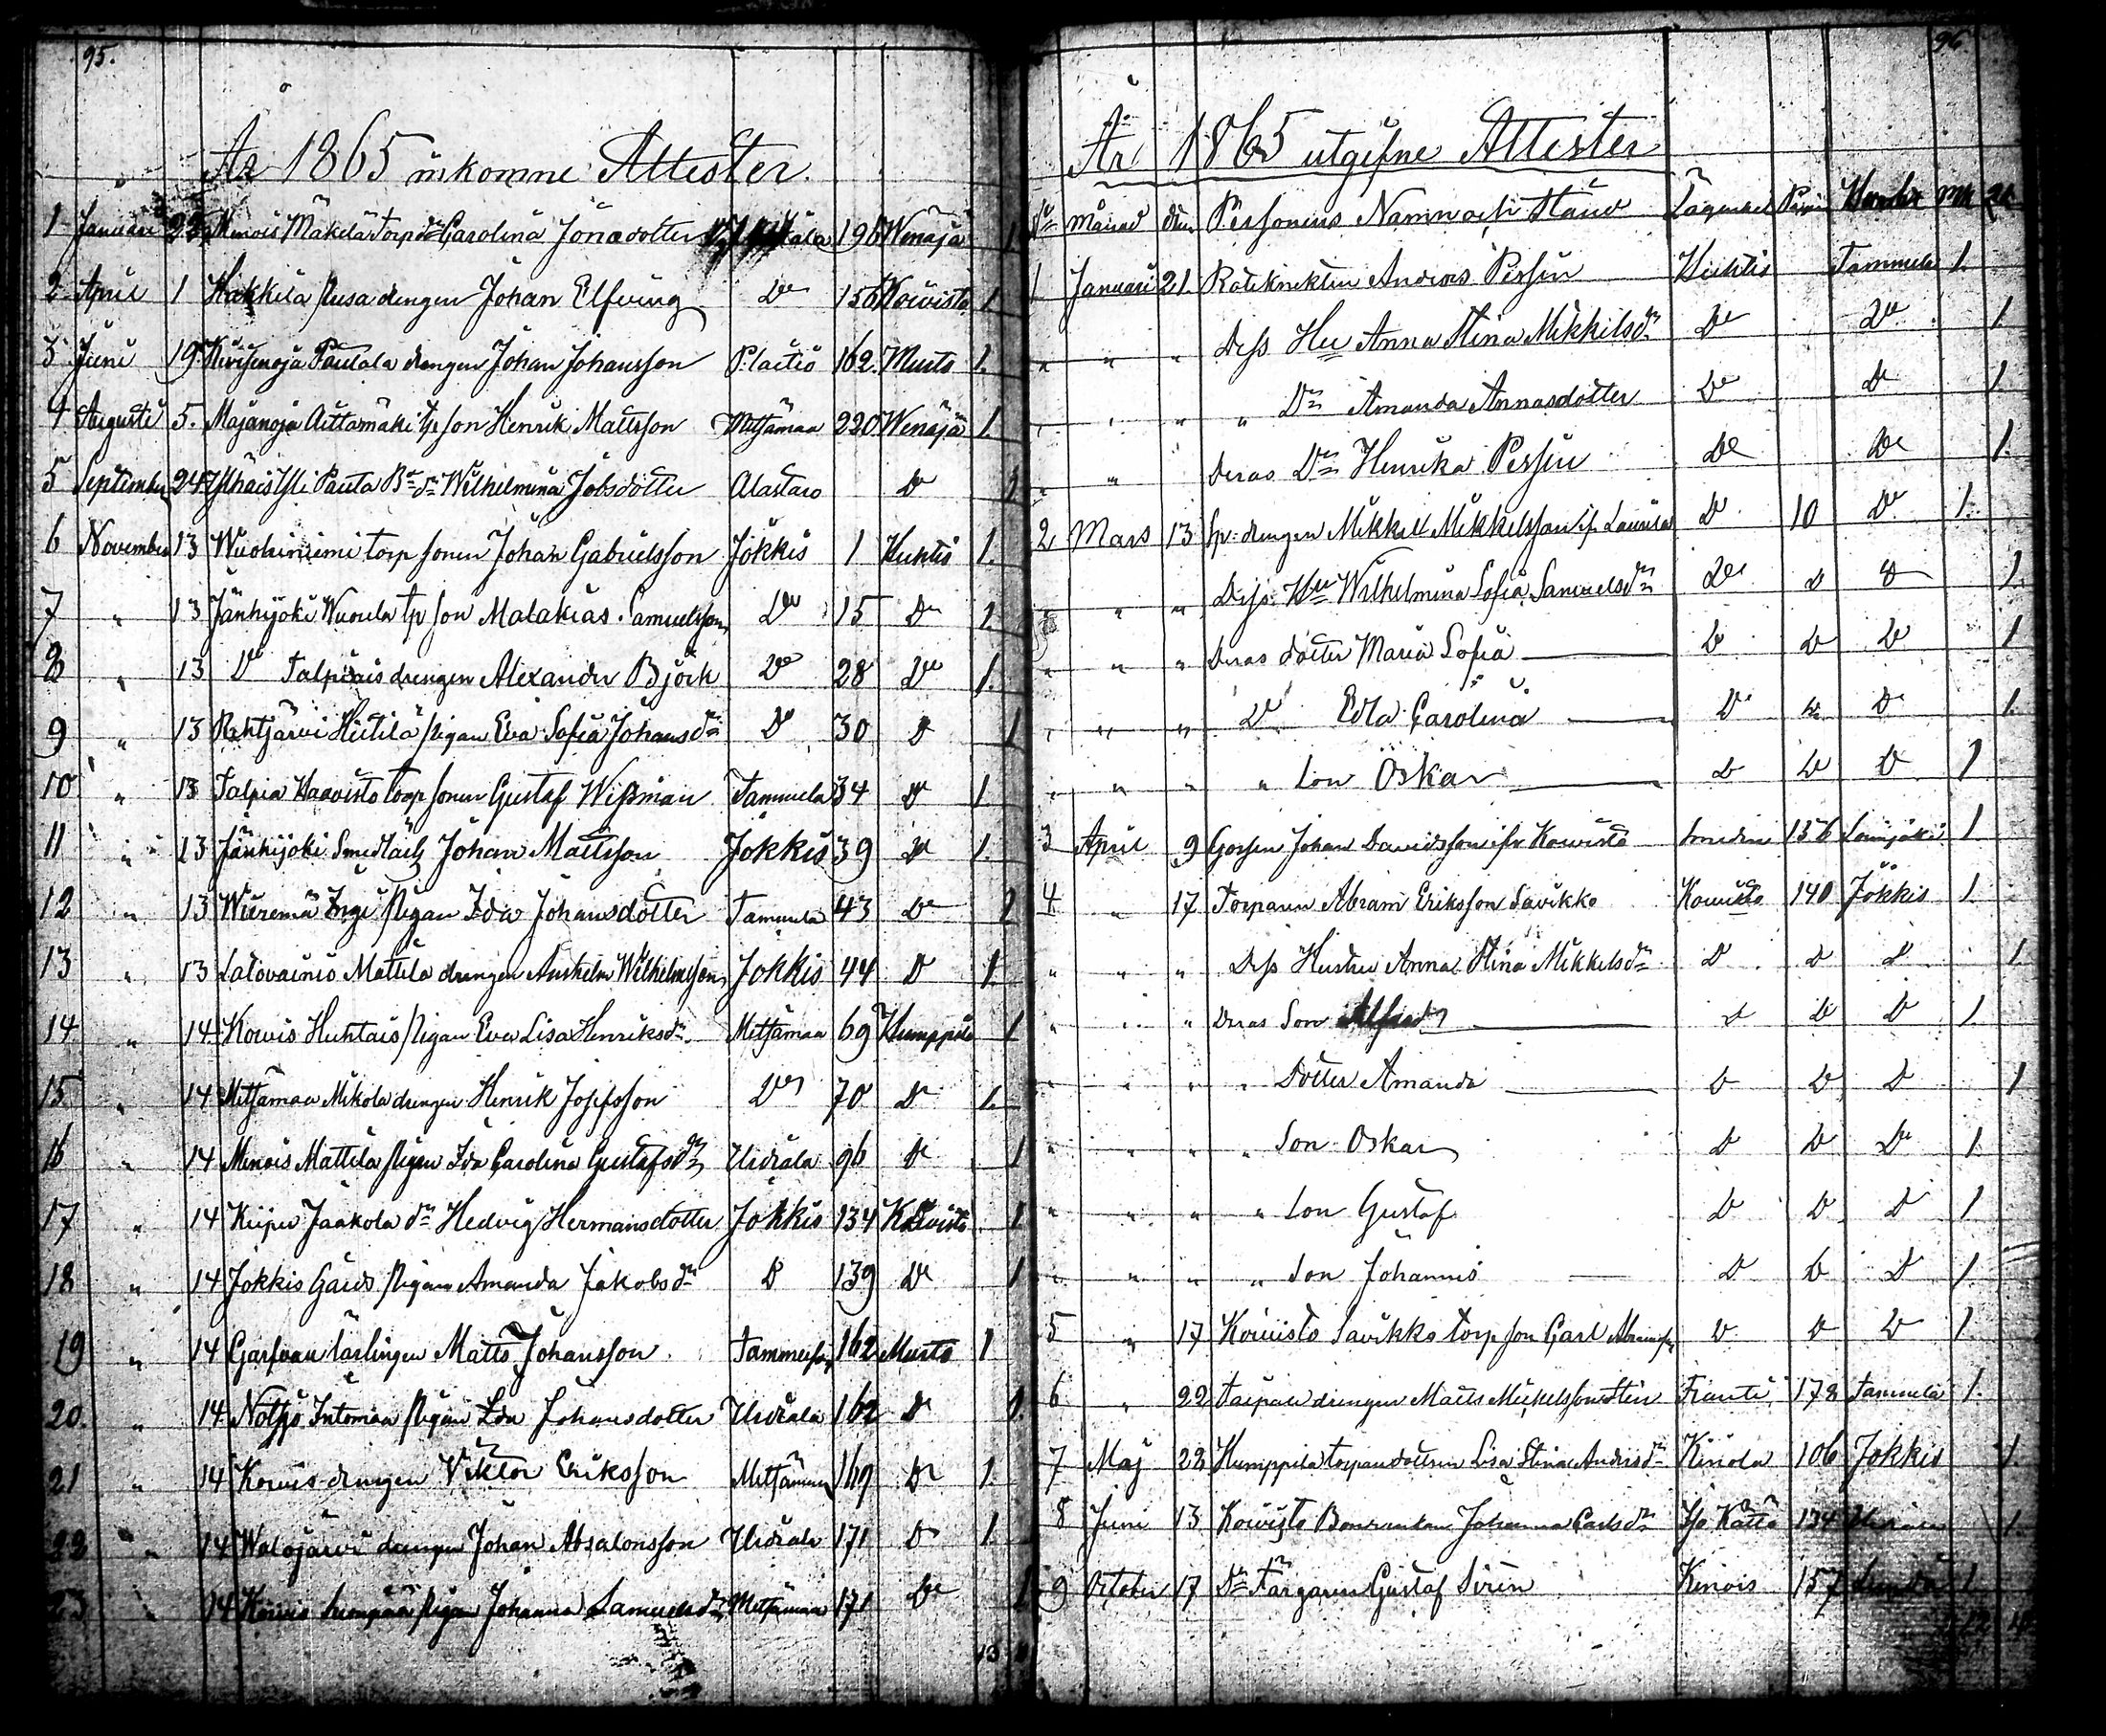 95.
År 1865 inkomne Attester.
1 Januari 22 Minois Mäkelä torp dr Carolina Jönadotter 196 Wenäjä 1
2 April 1 Häkkilä Pusa drengen Johan Elfving Do 156 Koivisto 1.
3 Juni 19 Paulala drengen Johan Johansson P:laitio 162. Musto 1.
4 Augusti 5. Majanoja Aittamäki tp son Henrik Mattsson Metsämaa 220 Wenäjä 1.
5 September 24 Ylhäis Ylli Pauta Wilhelmina Jobsdotter Alastaro Do 1
6 November 13 Wuohiniemi torp sonen Johan Gabrielsson Jokkis 1 Kuhtis 1.
7 " 13 Jänhijoki Wuorela tp son Malakias Samuelsson Do 15 Do 1.
8 " 13 Do Talpiais drengen Alexander Björk Do 28 Do 1.
9 " 13 Rehtjärvi Hiitilä pigan Eva Sofia Johansdr Do 30 D 1
10 " 13 Talpia Haavisto torp sonen Gustaf Wissman Tammela 34 D 1
11 " 13 Jänhijoki Smedlärl Johan Mattsson Jokkis 39 D 1.
12 " 13 pigan Ida Johansdotter Tammela 43 Do 1
13 " 13 Latovainio Mattila drengen Anshelm Wilhelmsson Jokkis 44 D 1.
14 " 14 Kowis Huhtais pigan Eva Lisa Henriksdr. Metsämaa 69 Humppila 1
15 " 14 Metsämaa Mikola drengen Henrik Josefsson Do 70 Do 1.
16 " 14 Minois Mattila pigan Ida Carolina Gustafsdr Urdiala 96 D 1
17 " 14 Kiipu Jaakola dr Hedvig Hermansdotter Jokkis 134 Koivisto 1
18 " 14 Jokkis Gård pigan Amanda Jakobsdr D 139 Do 1
19 " 14 Garfvare lärlingen Matts Johansson. Tammerfors 162 Musto 1
20. " 14 Notsjö Intomaa pigan Ida Johansdotter Urdiala 162 D 1.
21 " 14 Kowis drengen Viktor Eriksson Metsämaa 169 Do 1.
22 " 14 Walajärvi drengen Johan Absalonsson Urdiala 171 D 1.
23 " 14 Kowis pigan Johanna Samuelsdr Metsämaa 171 Do 1
13
96
År 1865 utgifne Attester
No Månad den Personens Namn och Stånd Lägenhet Pagin Hvarthän Mk Qk
1 Januari 21. Roteknekten Anders Persén Kuhtis Tammela 1.
" " " Dess Hu Anna Stina Mikkilsdr Do Do 1
" " " " Dr Amanda Annasdotter Do D 1
" " Deras Dr Henrika Persén Do Do 1.
2 Mars 13 Sp: drengen Mikkel Mikkelsson D 10 Do 1.
" " " Dess Hu Wilhelmina Sofia Samuelsdr Do D D 1.
" " " Deras dotter Maria Sofia D D D 1
" " " D Edla Carolina D D D 1.
" " " " Son Oskar D D D 1
3 April 9 Gossen Johan Davidsson ifr Koivisto Smeden 156 Loimjoki 1
4 " 17 Torparen Abram Eriksson Savikko Koivisto 140 Jokkis 1
" " " Dess Hustru Anna Stina Mikkelsdr D D D 1
" " " Deras Son Alfred D D D 1.
" " " " Dotter Amanda D D D 1
" " " " Son Oskar D D Do 1
" " " " Son Gustaf D D D 1
" " " " Son Johannis D D D 1
5 " 17 Koivisto Savikko torp son Carl Abramss D D D 1
6 " 22 Taipale drengen Matts Mickelsson Stén Franti 178 Tammela 1.
7 Maj 22 Humppila torparedottren Lisa Stina Andersdr 106 Jokkis 1.
8 Juni 13 Koivisto Johanna Carlsdr 134 1
9 October 17 Do Färgaren Gustaf Sirén Kenois 157 1